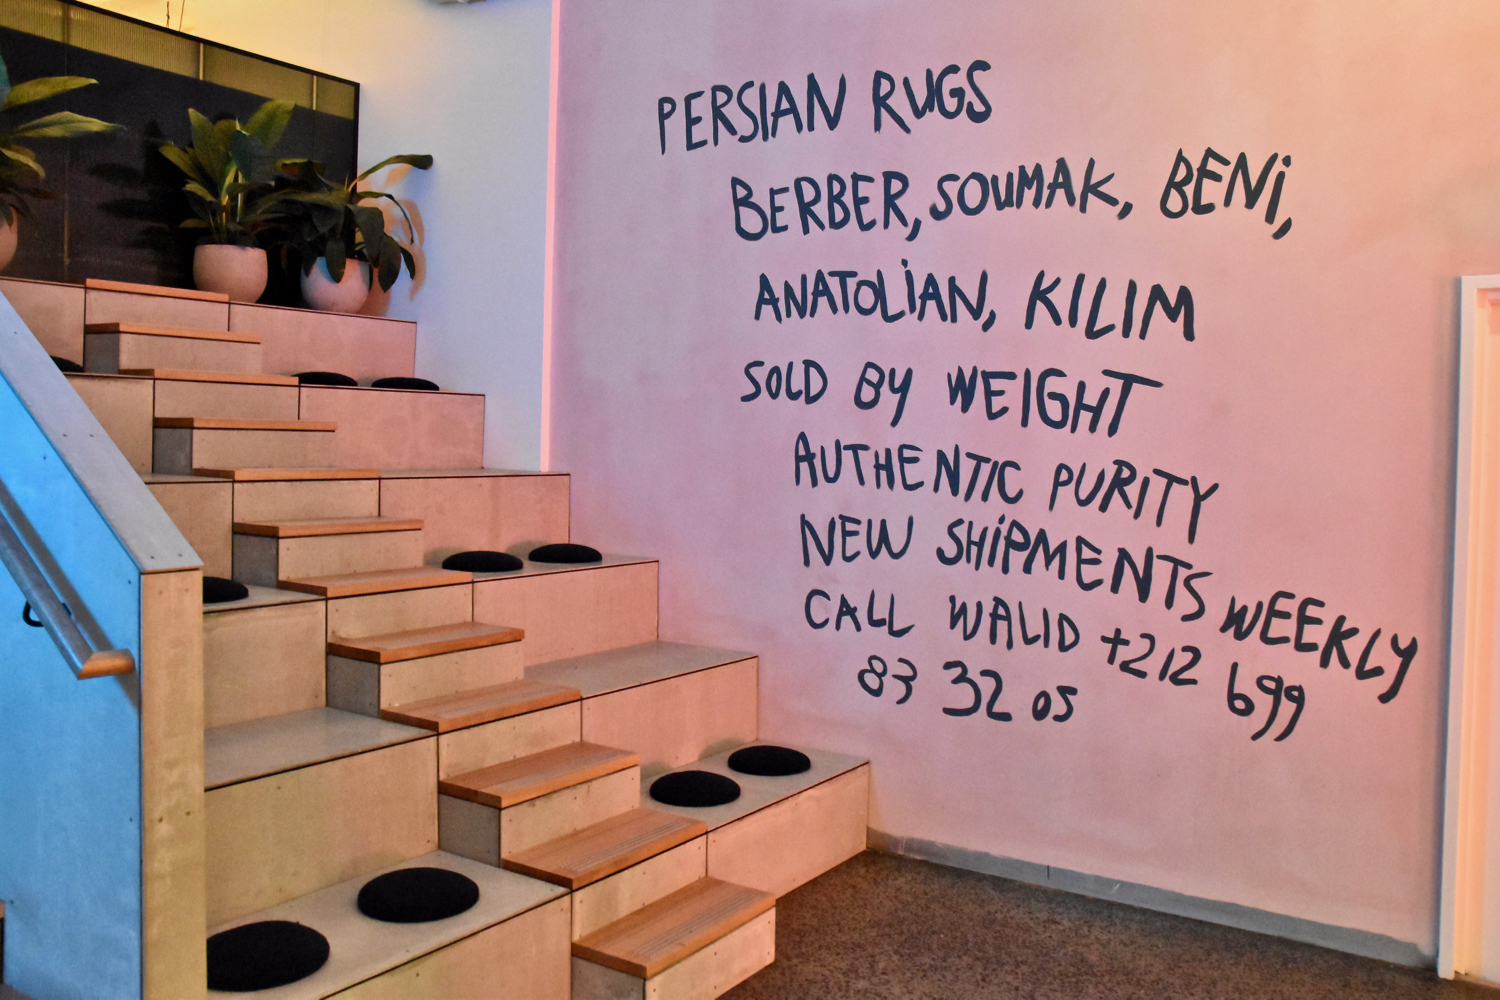 PERSIAN RUGS
BERBER, SOUMAK, BENi,
ANATOLiAN, KILIM
SOLD BY WEIGHT
AUTHENTIC PURITY
NEW SHiPMENTS WEEKLY
CALL WALID +212 699
83 32 05